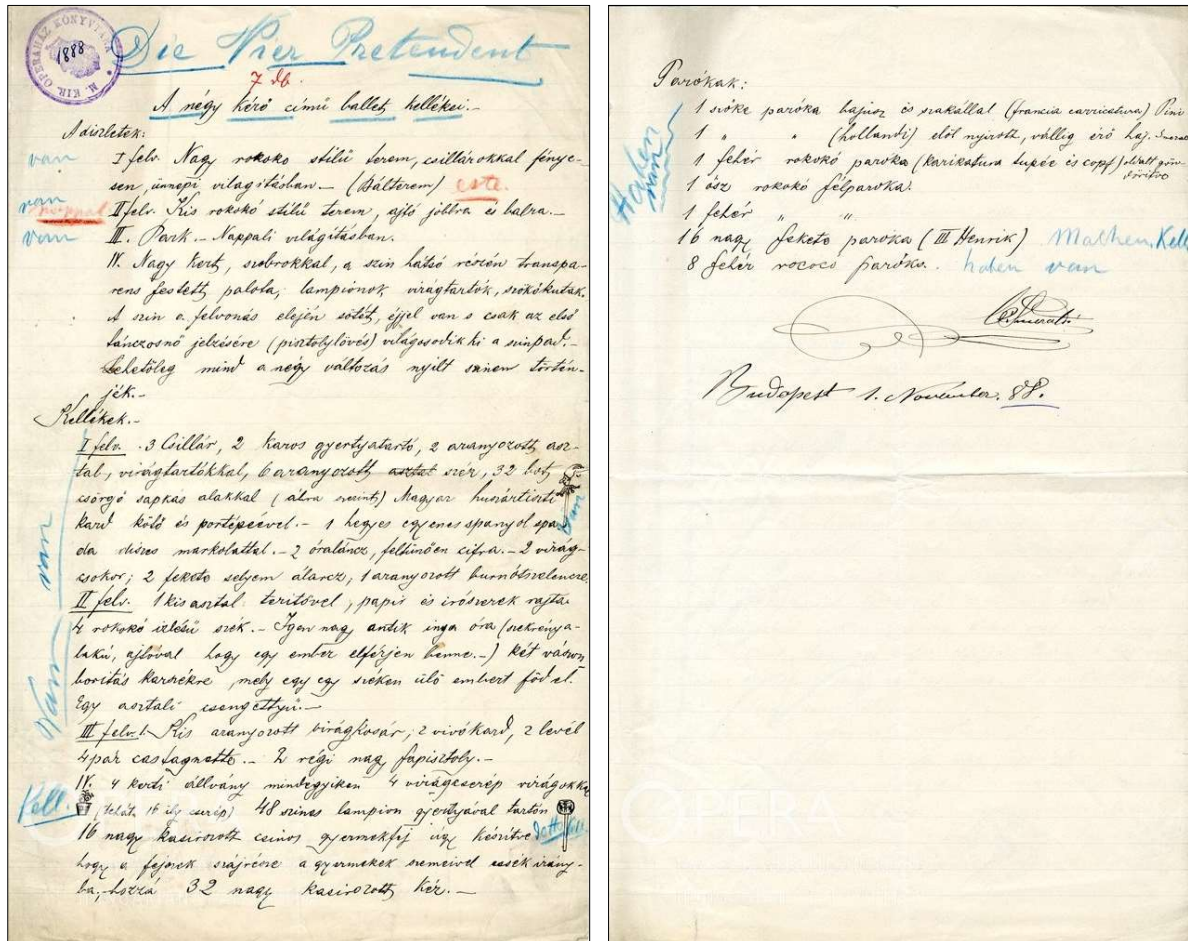 M. KIR. OPERAHÁZ KÖNYVTÁRA
1888
Die Vier Pretendent
7 db.
A négy kérő című ballet kellékei.-
A diszletek:
van I felv. Nagy rokoko stilű terem, csillárokkal fénye-
sen, ünnepi világitásban.- (Bálterem) este.
van nappal II felv. Kis rokokó stilű terem, ajtó jobbra és balra.-
van III. Park.- Nappali világitásban.
IV. Nagy kert, szobrokkal, a szin hátsó részén transpa-
rens festett palota, lampiónok, virágtartók, szökőkutak.
A szin a felvonás elején sötét, éjjel van s csak az első
tánczosnő jelzésére (pisztolylövés) világosodik ki a szinpad.-
Lehetőleg mind a négy változás nyilt szinen történ-
jék.-
Kellékek.-
I felv. 3 Csillár, 2 Karos gyertyatartó, 2 aranyozott asz-
tal, virágtartókkal, 6 aranyozott asztal szék, 32 bot
csörgő sapkás alakkal (ábra szerint) Magyar huszártiszti
kard kötő és portépéevel.- 1 hegyes egyenes spanyol spa-
da diszes markolattal.- 2 óraláncz, feltünően cifra.- 2 virág-
csokor; 2 fekete selyem álarcz, 1 aranyozott burnótszelencze
van
van
II felv. 1 kis asztal teritővel, papir és irószerek rajta
4 rokokó izlésü szék.- Igen nagy antik inga óra (szekrénya-
lakú, ajtóval hogy egy ember elférjen benne.-) két vászon
boritás karszékre, mely egy egy széken ülő embert föd el.
Egy asztali csengettyü.-
Van
III felv. 1 Kis aranyozott virágkosár, 2 vivókard, 2 levél
4 pár castagnette.- 2 régi nagy fapisztoly.-
IV. 4 kerti állvány mindegyiken 4 virágcserép virágokka
Kell. (tehát 16 ily cserép) 48 szines lampion gyertyával tartón
16 nagy kasirozott csinos gyermekfej úgy készitve
hogy a fejeknek szájrésze a gyermekek szemeivel essék irány-
ba, hozzá 32 nagy kasirozott kéz.-
OPERA
Parókák:
1 szőke paróka bajusz és szakállal (francia carricatura) Pini
1 " " (hollandi) elől nyirott, vállig érő haj.
1 fehér rokokó paróka (karikatura tupée és copf) oldalt gön-
döritve
1 ősz rokokó félparóka.
1 fehér " "
Haben van
16 nagy fekete paróka (III Henrik) Machen, Kell
8 fehér rococo paróka. haben van
Budapest 1. November. 88.
OPERA